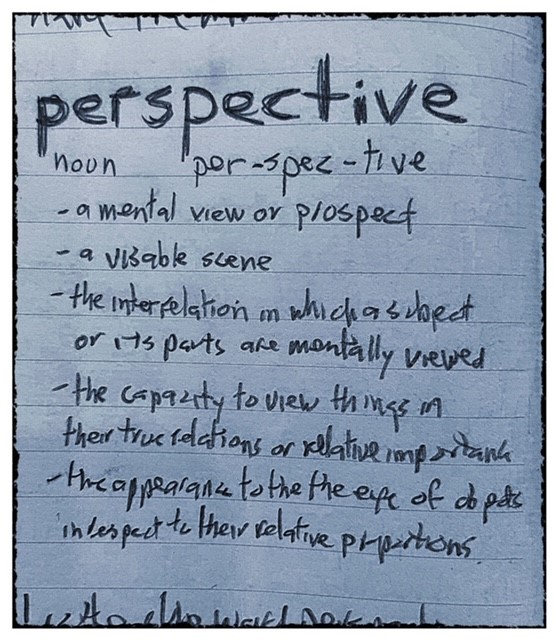 perspective
noun per-spec-tive
- a mental view or prospect
- a visable scene
- the interrelation in which a subject
or its parts are mentally viewed
- the capacity to view things in
their true relations or relative importance
- the appearance to the the eye of objects
in respect to their relative proportions.